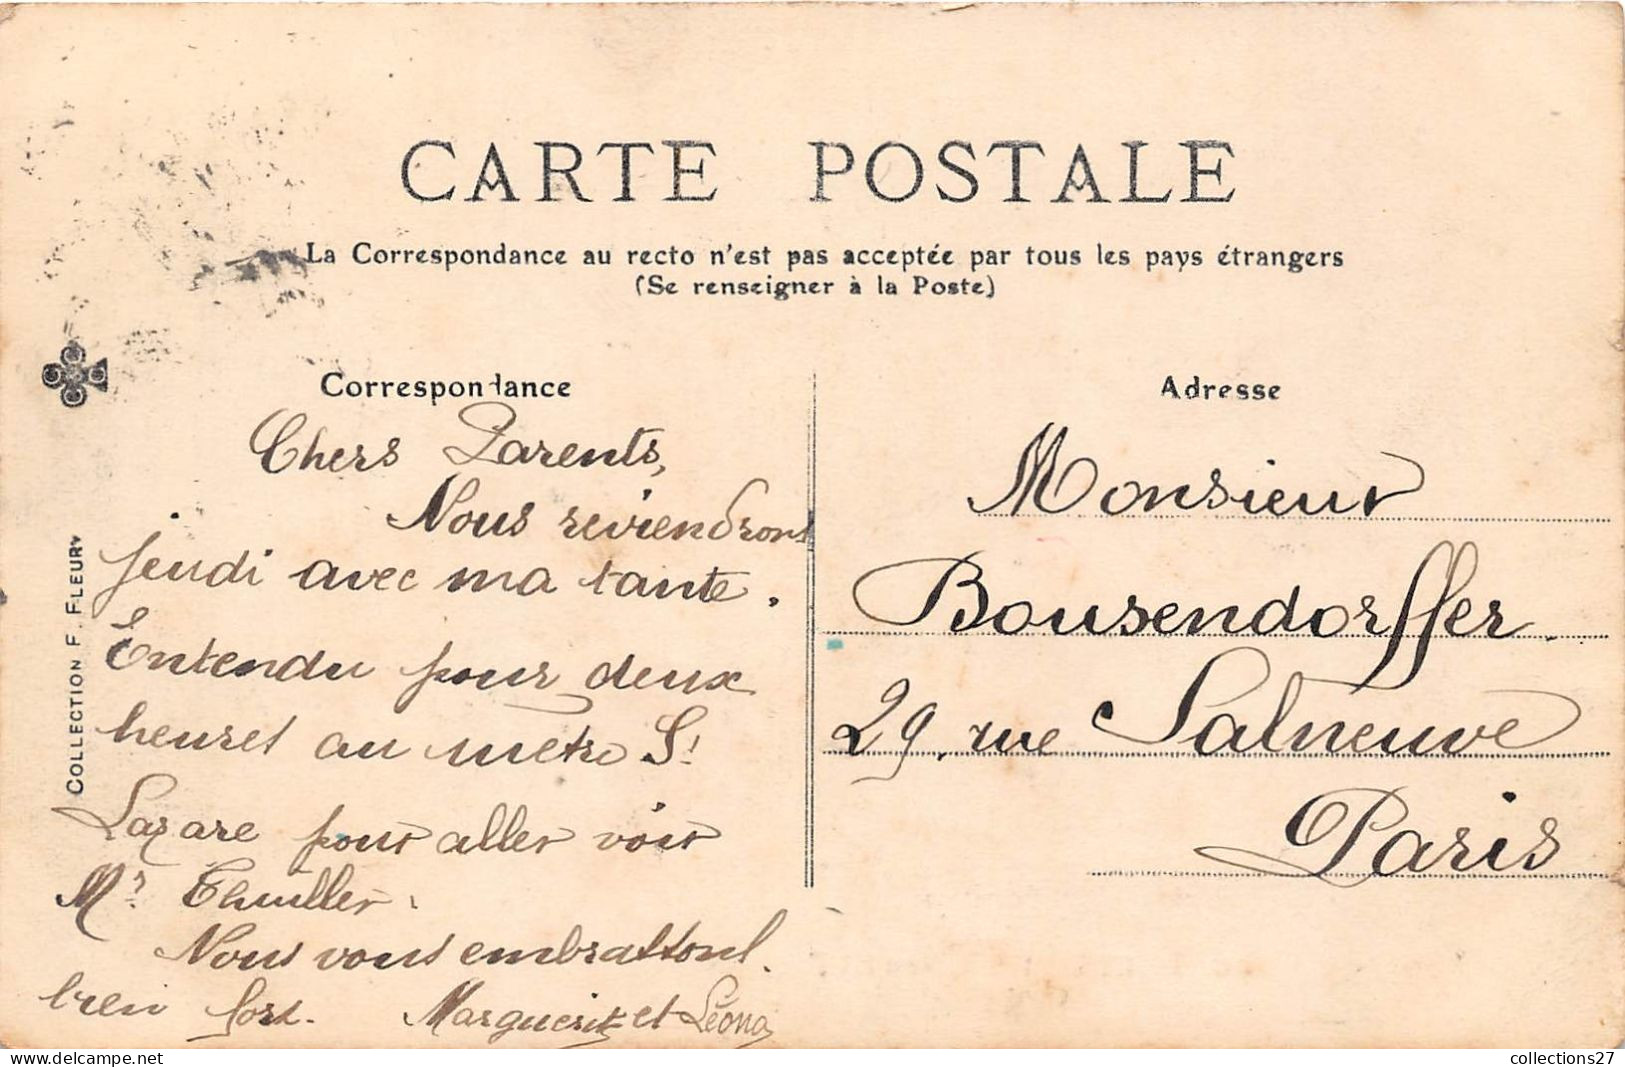 CARTE POSTALE
La Correspondance au recto n'est pas acceptée par tous les pays étrangers
(Se renseigner à la Poste)
Correspondance
Chers Parents,
Nous reviendrons
jeudi avec ma tante.
Entendu pour deux
heures au métro St
Lazare pour aller voir
Mr. Thuiller.
Nous vous embrassons
bien fort. Marguerite et Léona
COLLECTION F. FLEURY
Adresse
Monsieur
Bousendorffer.
29, rue Salneuve
Paris
collections27